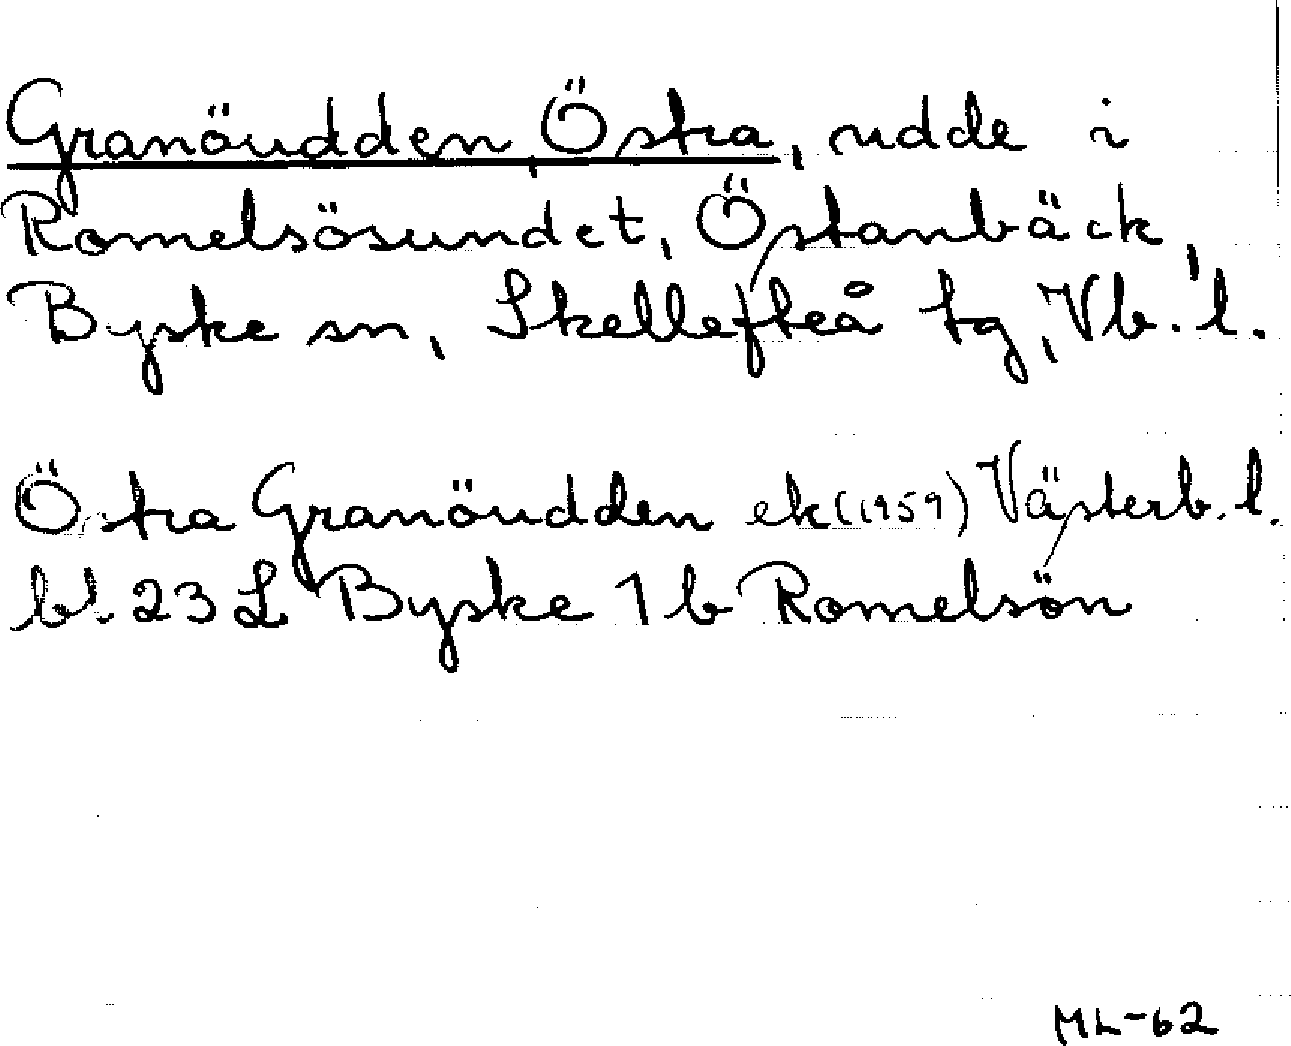 Granöudden, Östra, udde i
Romelsösundet, Östanbäck,
Byske sn, Skellefteå tg, Vb. l.
Östra Granöudden ek (1959) Västerb. l.
bl. 23 L Byske 1 b Romelsön
ML-62